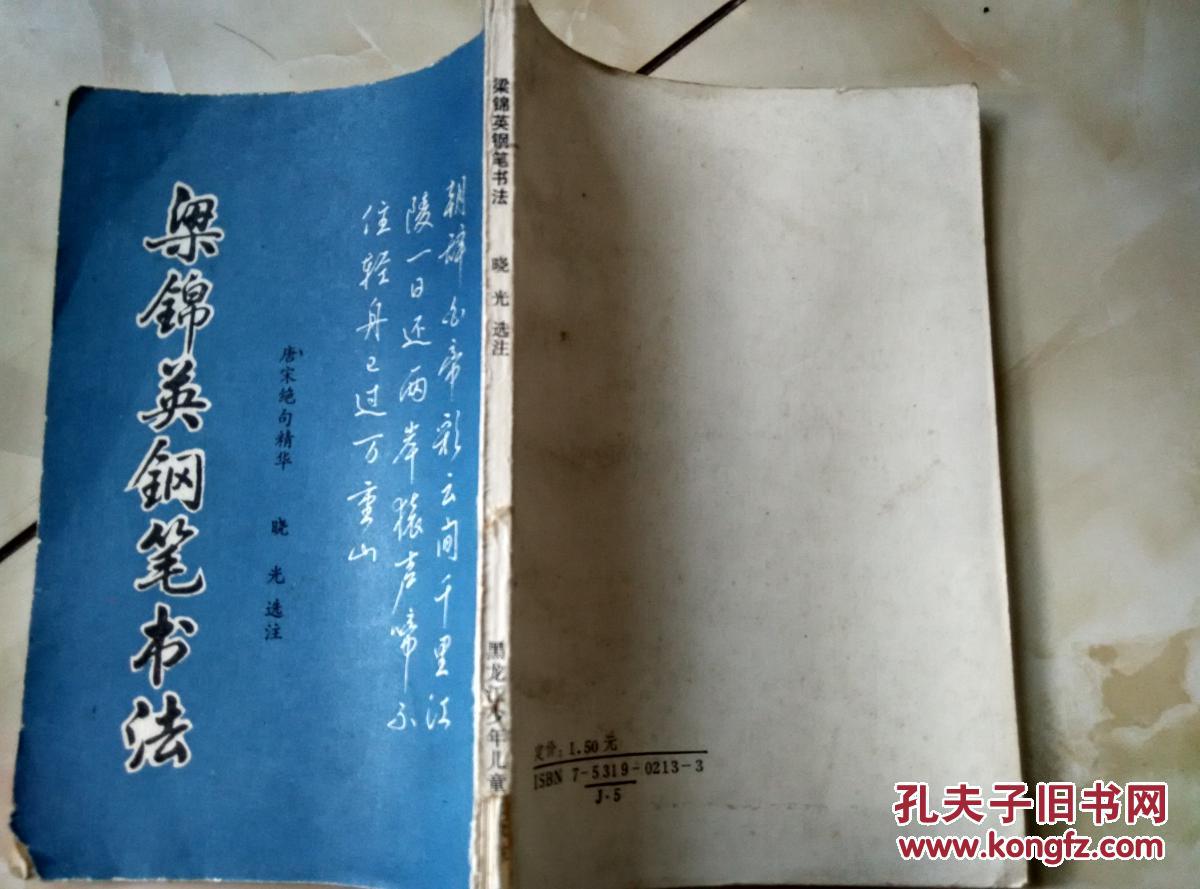 梁錦英钢笔书法
唐宋绝句精华
晓光选注
朝辞白帝彩云间千里江
陵一日还两岸猿声啼不
住轻舟已过万重山
梁錦英钢笔书法
晓光选注
黑龙江少年儿童
定价：1.50元
ISBN 7-5319-0213-3
J·5
孔夫子旧书网
www.kongfz.com